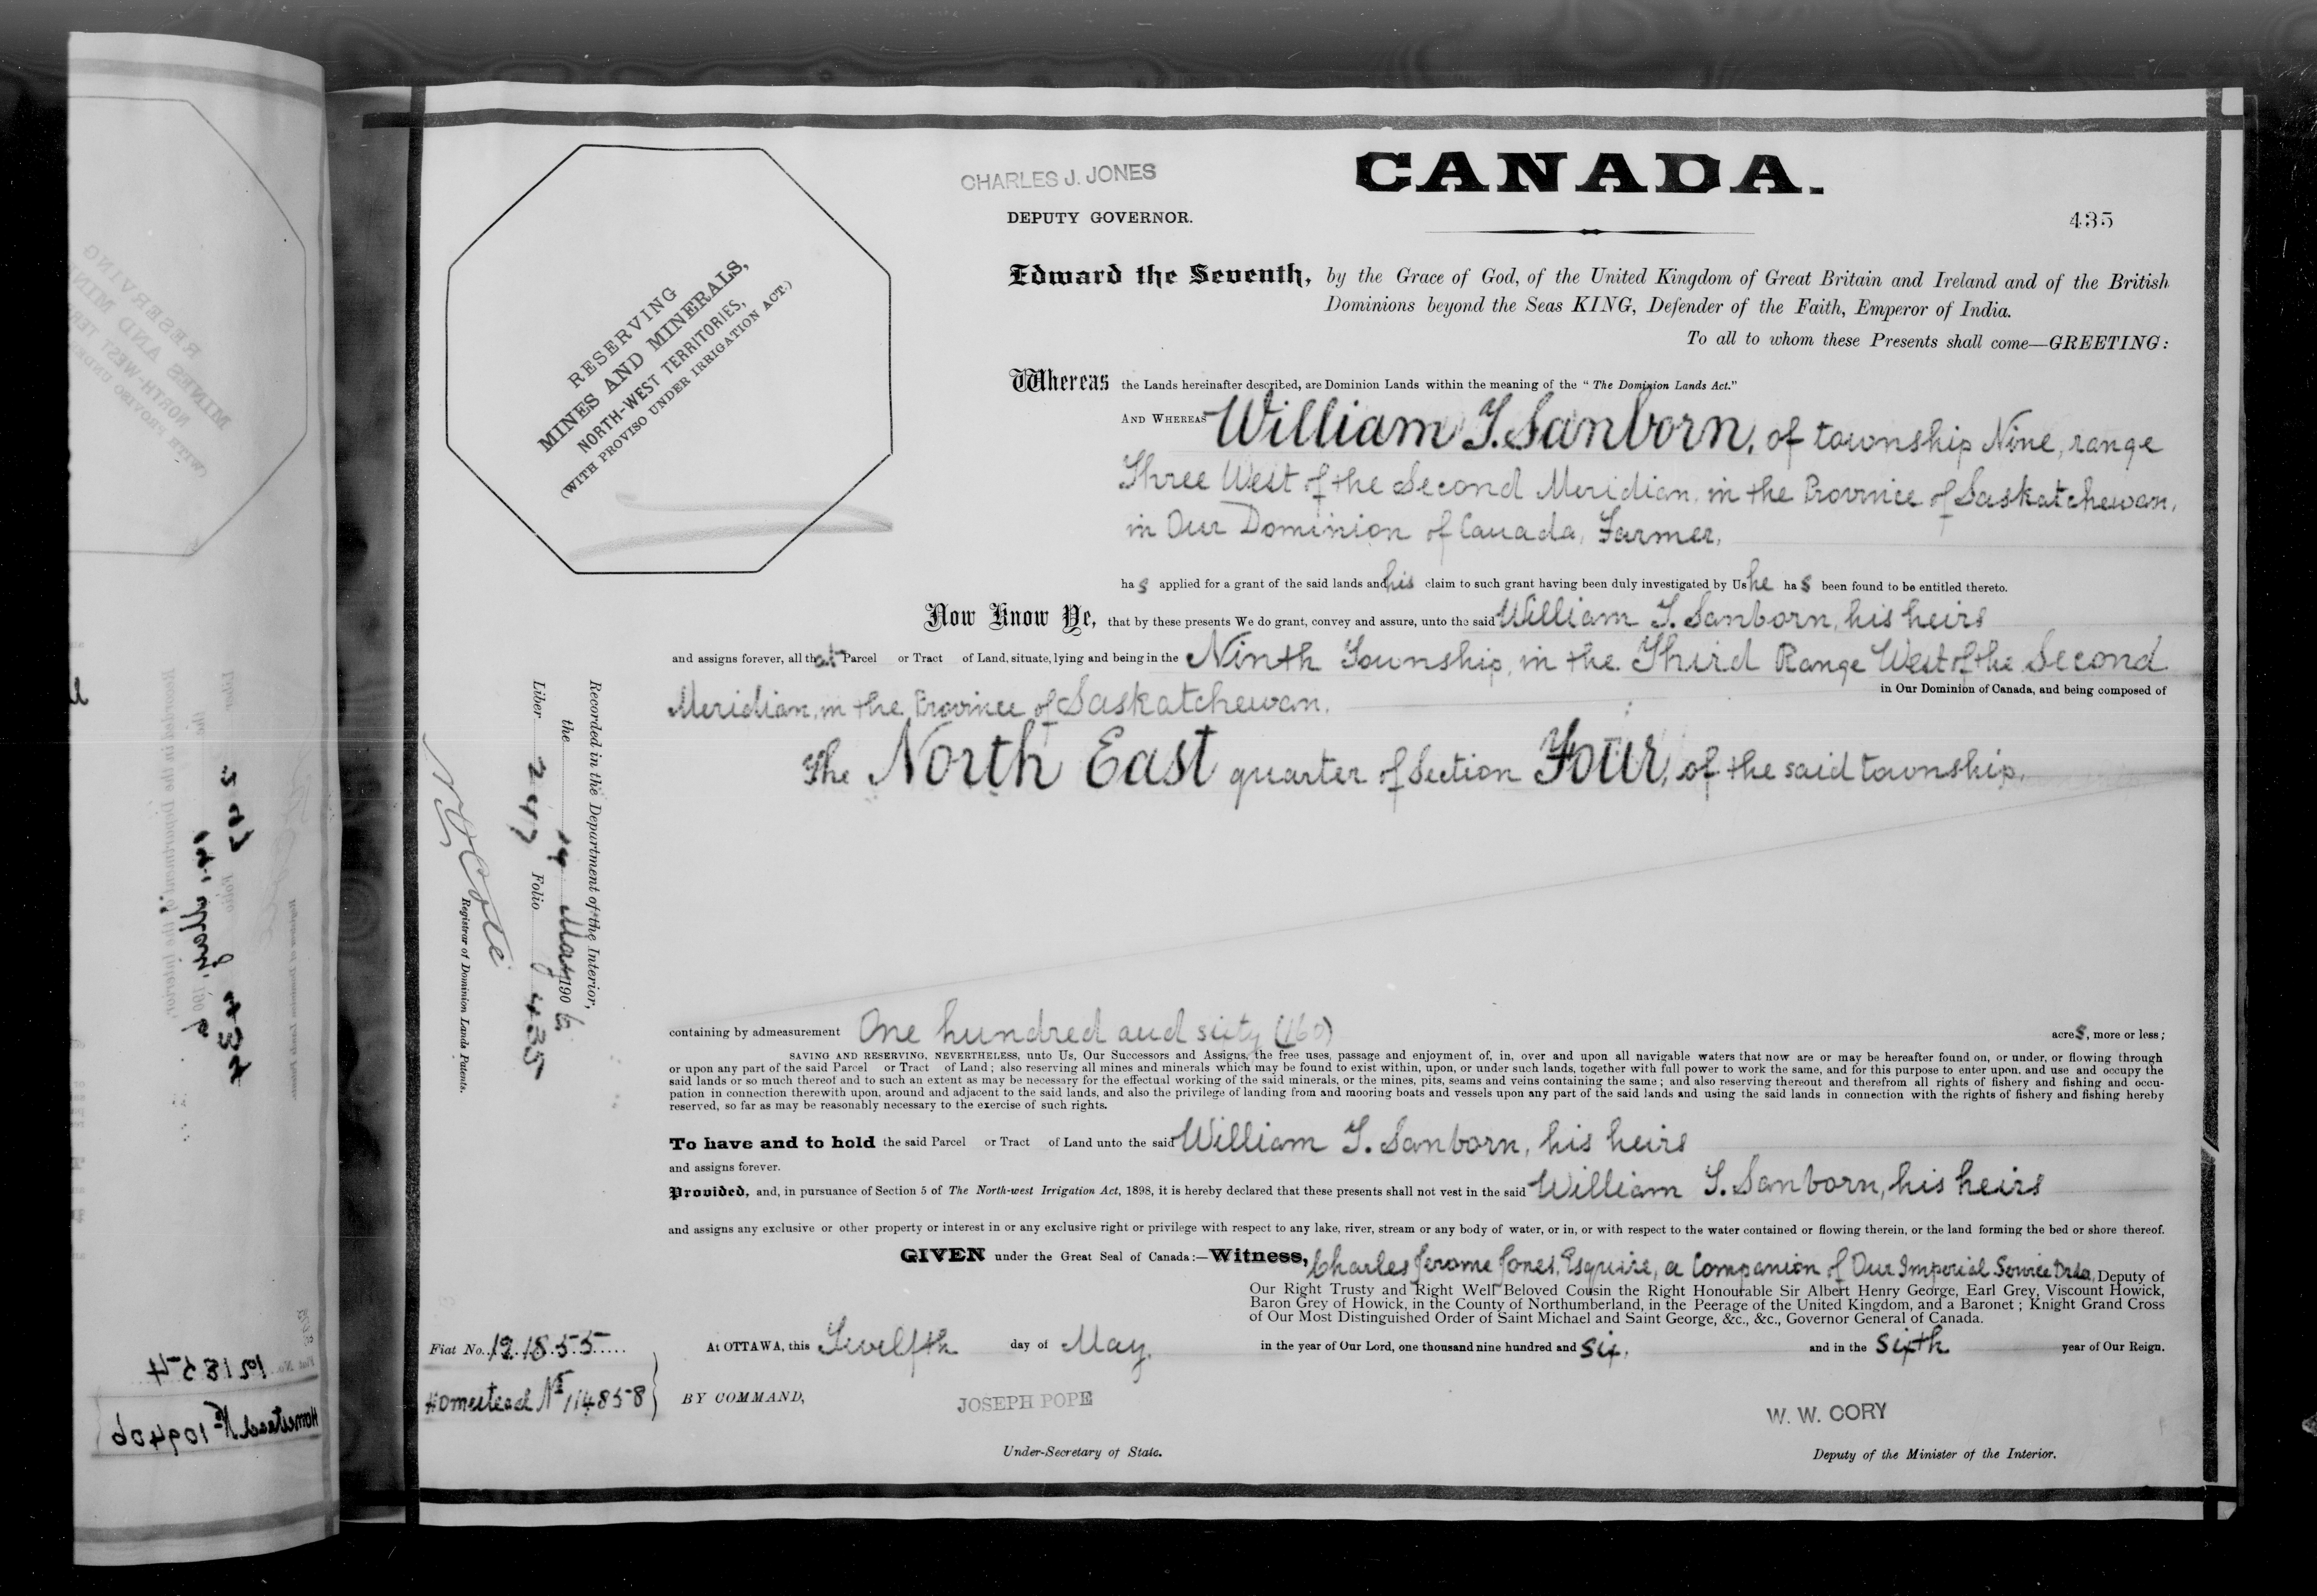 CHARLES J. JONES
DEPUTY GOVERNOR.
CANADA.
435
RESERVING
MINES AND MINERALS,
NORTH-WEST TERRITORIES,
(WITH PROVISO UNDER IRRIGATION ACT.)
Edward the Seventh, by the Grace of God, of the United Kingdom of Great Britain and Ireland and of the British
Dominions beyond the Seas KING, Defender of the Faith, Emperor of India.
To all to whom these Presents shall come—GREETING:
Whereas the Lands hereinafter described, are Dominion Lands within the meaning of the "The Dominion Lands Act."
AND WHEREAS William T. Sanborn, of township Nine, range
Three West of the Second Meridian, in the Province of Saskatchewan,
in Our Dominion of Canada, Farmer,
has applied for a grant of the said lands and his claim to such grant having been duly investigated by Us he has been found to be entitled thereto.
Now Know Ye, that by these presents We do grant, convey and assure, unto the said William T. Sanborn, his heirs
and assigns forever, all that Parcel or Tract of Land, situate, lying and being in the Ninth Township, in the Third Range West of the Second
Meridian, in the Province of Saskatchewan, in Our Dominion of Canada, and being composed of
The North East quarter of Section Four, of the said township,
Recorded in the Department of the Interior,
the 14 May 1906
Liber 247 Folio 435
Registrar of Dominion Lands Patents.
containing by admeasurement One hundred and sixty (160) acres, more or less;
SAVING AND RESERVING, NEVERTHELESS, unto Us, Our Successors and Assigns, the free uses, passage and enjoyment of, in, over and upon all navigable waters that now are or may be hereafter found on, or under, or flowing through
or upon any part of the said Parcel or Tract of Land; also reserving all mines and minerals which may be found to exist within, upon, or under such lands, together with full power to work the same, and for this purpose to enter upon, and use and occupy the
said lands or so much thereof and to such an extent as may be necessary for the effectual working of the said minerals, or the mines, pits, seams and veins containing the same; and also reserving thereout and therefrom all rights of fishery and fishing and occu-
pation in connection therewith upon, around and adjacent to the said lands, and also the privilege of landing from and mooring boats and vessels upon any part of the said lands and using the said lands in connection with the rights of fishery and fishing hereby
reserved, so far as may be reasonably necessary to the exercise of such rights.
To have and to hold the said Parcel or Tract of Land unto the said William T. Sanborn, his heirs
and assigns forever.
Provided, and, in pursuance of Section 5 of The North-west Irrigation Act, 1898, it is hereby declared that these presents shall not vest in the said William T. Sanborn, his heirs
and assigns any exclusive or other property or interest in or any exclusive right or privilege with respect to any lake, river, stream or any body of water, or in, or with respect to the water contained or flowing therein, or the land forming the bed or shore thereof.
GIVEN under the Great Seal of Canada:—Witness, Charles Jerome Jones, Esquire, a Companion of Our Imperial Service Order, Deputy of
Our Right Trusty and Right Well Beloved Cousin the Right Honourable Sir Albert Henry George, Earl Grey, Viscount Howick,
Baron Grey of Howick, in the County of Northumberland, in the Peerage of the United Kingdom, and a Baronet; Knight Grand Cross
of Our Most Distinguished Order of Saint Michael and Saint George, &c., &c., Governor General of Canada.
At OTTAWA, this Twelfth day of May, in the year of Our Lord, one thousand nine hundred and six, and in the sixth year of Our Reign.
Fiat No. 121855
Homestead No 114858
BY COMMAND,
JOSEPH POPE
Under-Secretary of State.
W. W. CORY
Deputy of the Minister of the Interior.
121854
Homestead No 109406